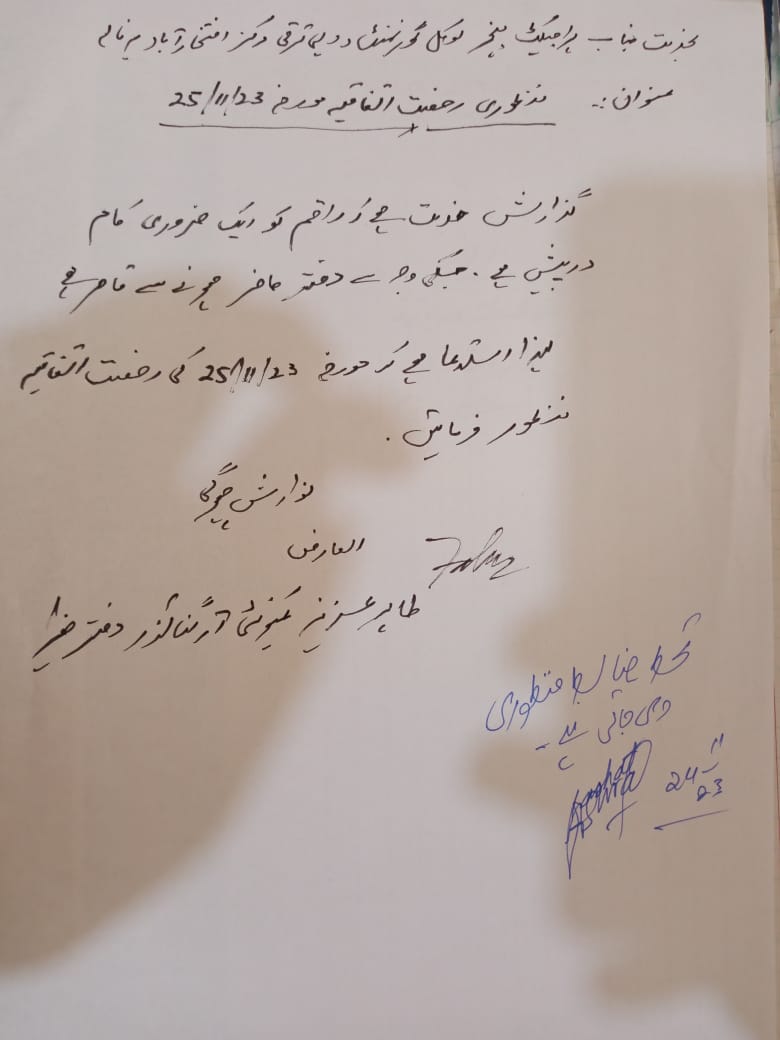 بخدمت جناب پراجیکٹ مینجر لوکل گورنمنٹ و دیہی ترقی مرکز افتخار آباد برنالہ
عنوان:۔ منظوری رخصت اتفاقیہ مورخہ 25/11/23
گذارش خدمت ہے کہ راقم کو ایک ضروری کام
درپیش ہے۔ جسکی وجہ سے دفتر حاضر ہونے سے قاصر ہے
لہذا استدعا ہے کہ مورخہ 25/11/23 کی رخصت اتفاقیہ
منظور فرمائیں۔
نوازش ہوگی
العارض
طاہر عزیز کمیونٹی آرگنائزر دفتر ہذا
تحت ضابطہ منظوری
دی جاتی ہے۔
24/11/23